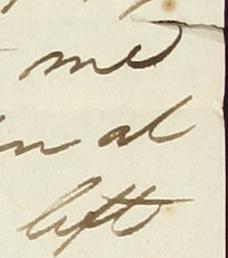 me
in al
left